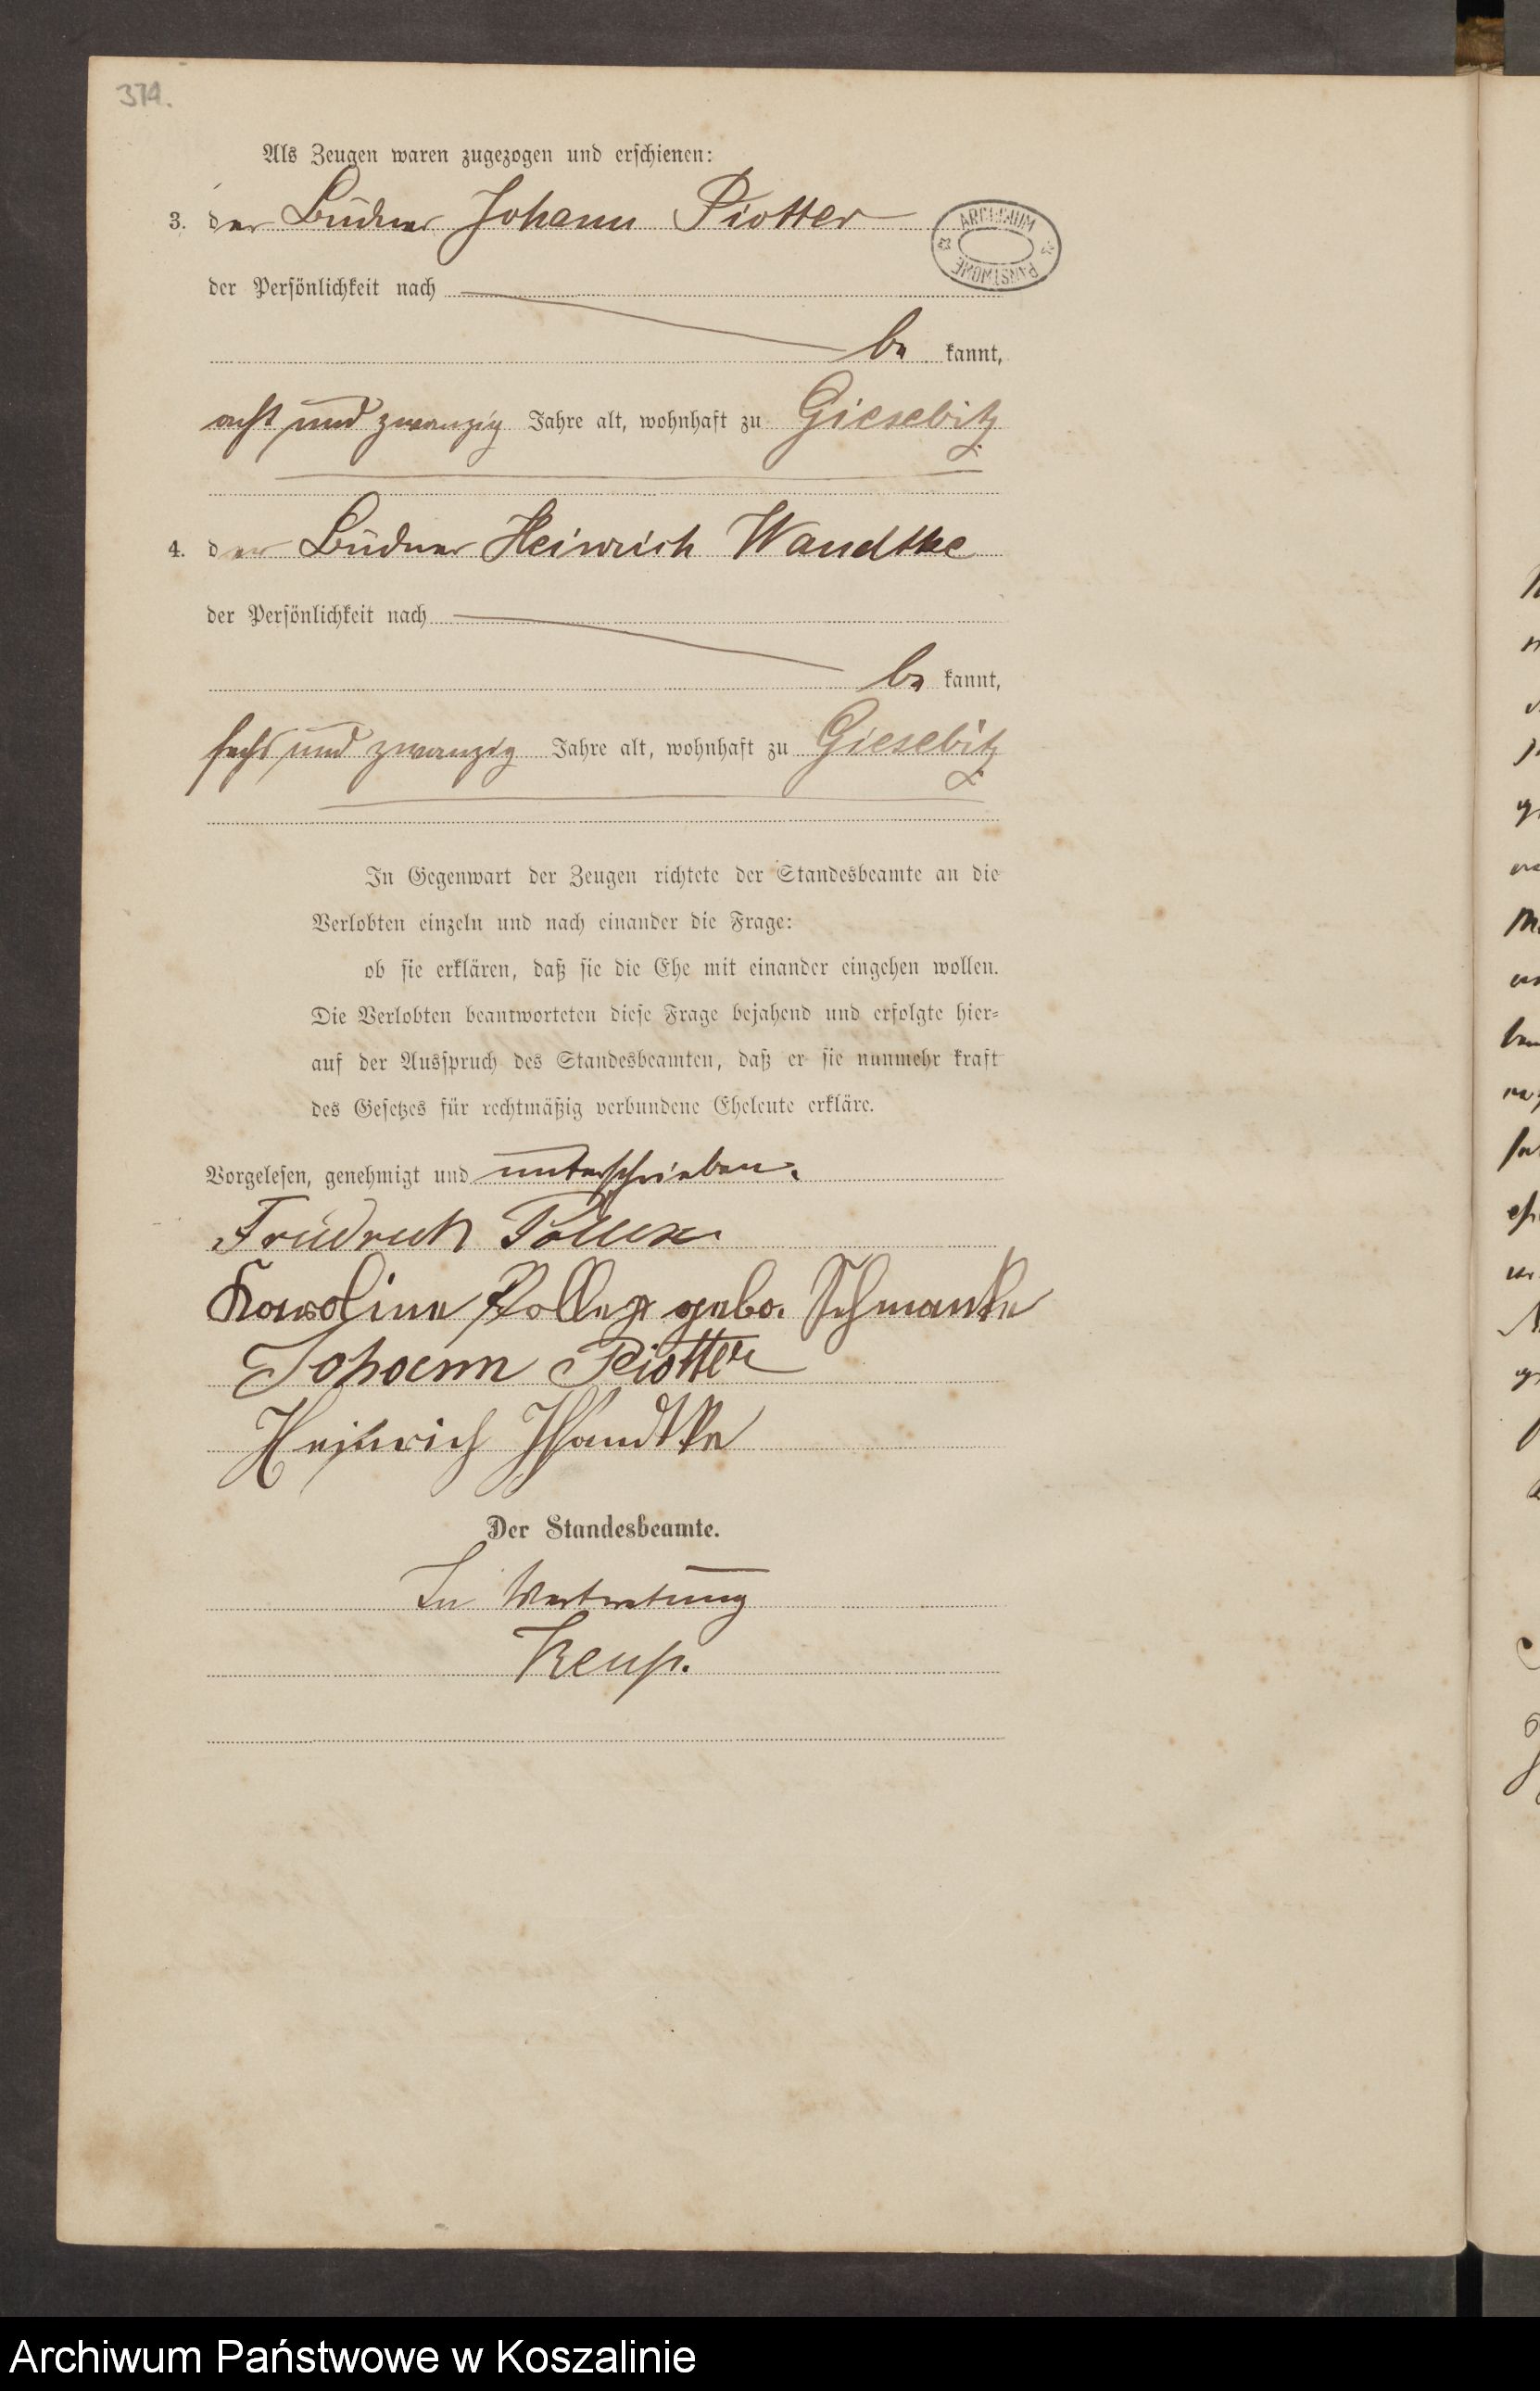 374.
Als Zeugen waren zugezogen und erschienen:
3. der Büdner Johann Piotter
ARCHIWUM PAŃSTWOWE
der Persönlichkeit nach
be kannt,
acht und zwanzig Jahre alt, wohnhaft zu Giesebitz
4. der Büdner Heinrich Wandtke
der Persönlichkeit nach
be kannt,
sechs und zwanzig Jahre alt, wohnhaft zu Giesebitz
In Gegenwart der Zeugen richtete der Standesbeamte an die
Verlobten einzeln und nach einander die Frage:
ob sie erklären, daß sie die Ehe mit einander eingehen wollen.
Die Verlobten beantworteten diese Frage bejahend und erfolgte hier-
auf der Ausspruch des Standesbeamten, daß er sie nunmehr kraft
des Gesetzes für rechtmäßig verbundene Eheleute erkläre.
Vorgelesen, genehmigt und unterschrieben.
Friedrich Pollex
Karoline Pollex gebo. Schmanke
Johann Piotter
Heinrich Wandtke
Der Standesbeamte.
In Vertretung
Keup.
Archiwum Państwowe w Koszalinie